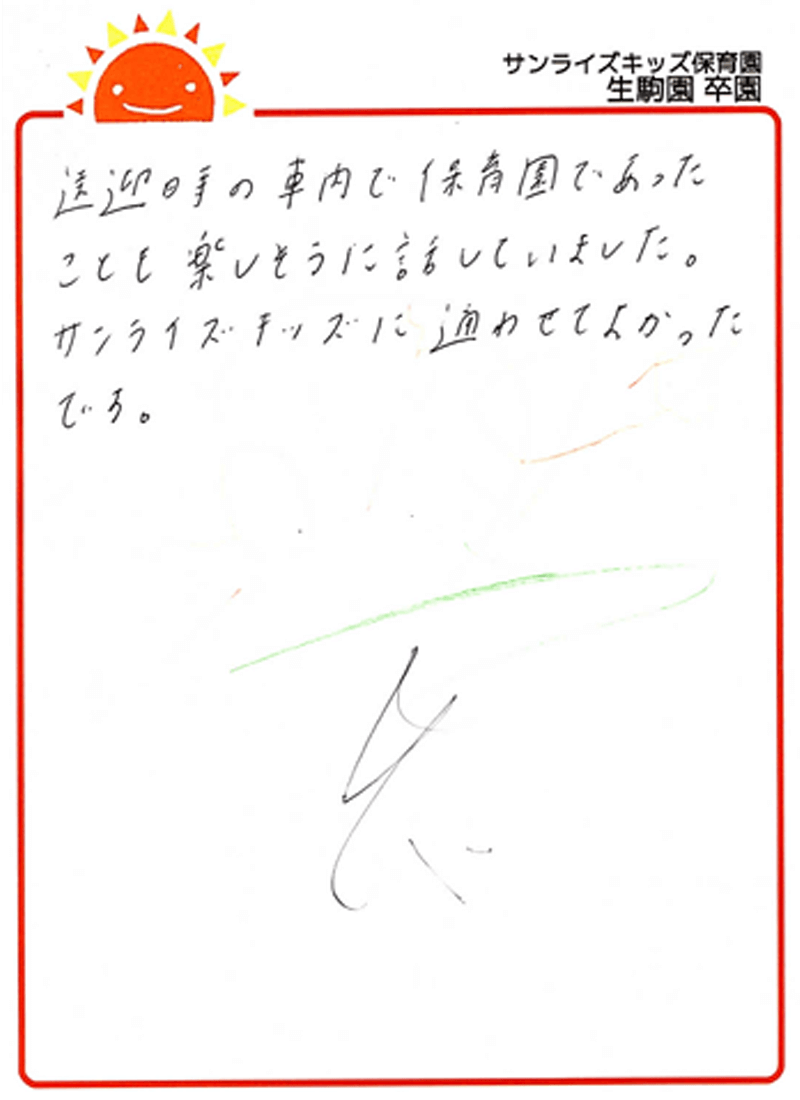 サンライズキッズ保育園
生駒園 卒園
送迎時の車内で保育園であった
ことも楽しそうに話していました。
サンライズキッズに通わせてよかった
です。